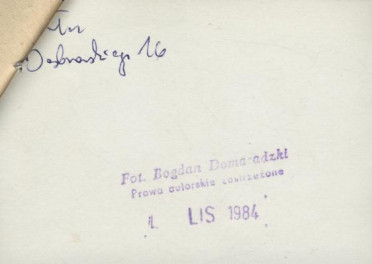 Dąbrowskiego 16
Fot. Bogdan Domaradzki
Prawa autorskie zastrzeżone
LIS 1984